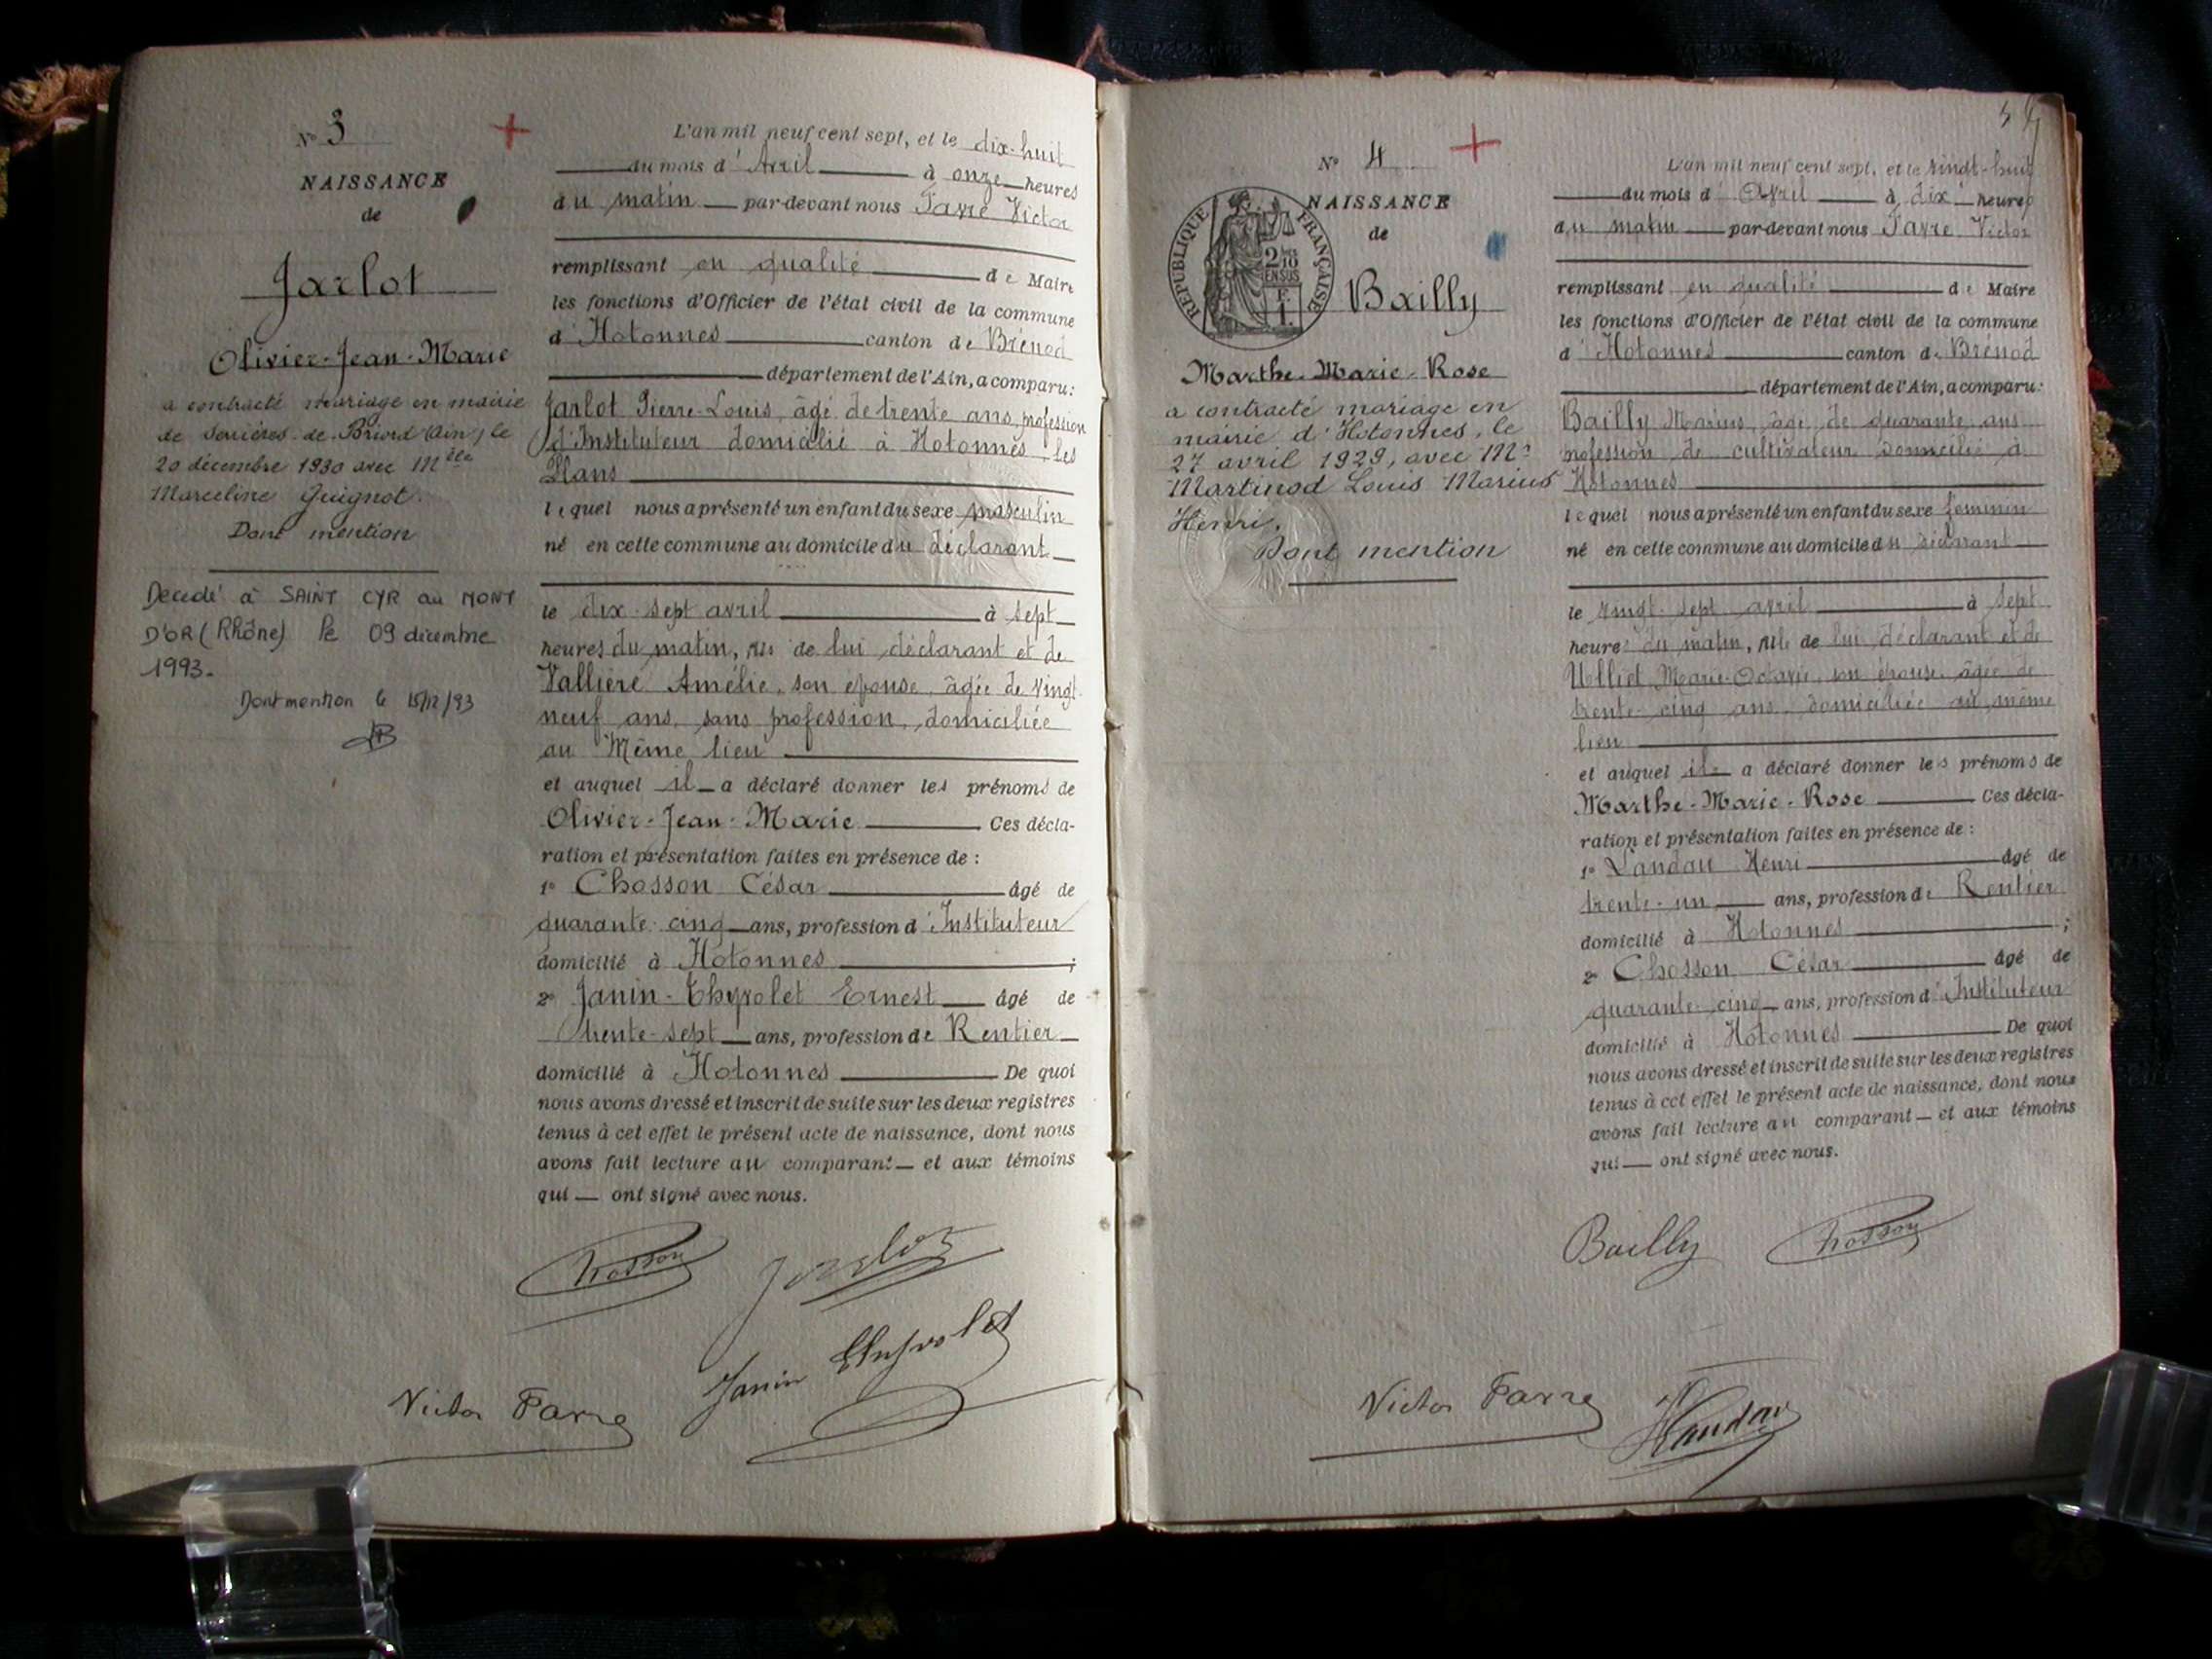 Nº 3
NAISSANCE
de
Jarlot
Olivier-Jean-Marie
a contracté mariage en mairie
de Serrières-de-Briord (Ain), le
20 décembre 1930 avec Melle
Marceline Guignot.
Dont mention
Décédé à SAINT CYR au MONT
D'OR (Rhône) le 09 décembre
1993.
Dont mention le 15/12/93
L'an mil neuf cent sept, et le dix-huit
du mois d'Avril à onze heures
du matin par-devant nous Favre Victor
remplissant en qualité de Maire
les fonctions d'Officier de l'état civil de la commune
d'Hotonnes canton de Brénod
département de l'Ain, a comparu:
Jarlot Pierre-Louis, âgé de trente ans, profession
d'Instituteur domicilié à Hotonnes, les
Plans
lequel nous a présenté un enfant du sexe masculin
né en cette commune au domicile du déclarant
le dix-sept avril à sept
heures du matin, fils de lui déclarant et de
Vallière Amélie, son épouse, âgée de vingt-
neuf ans, sans profession, domiciliée
au Même lieu
et auquel il a déclaré donner les prénoms de
Olivier-Jean-Marie Ces décla-
ration et présentation faites en présence de :
1º Chosson César âgé de
quarante-cinq ans, profession d'Instituteur
domicilié à Hotonnes ;
2º Janin-Thyvolet Ernest âgé de
trente-sept ans, profession de Rentier
domicilié à Hotonnes De quoi
nous avons dressé et inscrit de suite sur les deux registres
tenus à cet effet le présent acte de naissance, dont nous
avons fait lecture au comparant et aux témoins
qui ont signé avec nous.
Chosson Jarlot
Janin Thyvolet
Victor Favre
Nº 4
NAISSANCE
de
RÉPUBLIQUE FRANÇAISE
2/10 EN SUS
Bailly
Marthe-Marie-Rose
a contracté mariage en
mairie d'Hotonnes, le
27 avril 1929, avec Mr
Martinod Louis Marius
Henri.
Dont mention
L'an mil neuf cent sept, et le vingt-huit
du mois d'Avril à dix heures
du matin par-devant nous Favre Victor
remplissant en qualité de Maire
les fonctions d'Officier de l'état civil de la commune
d'Hotonnes canton de Brénod
département de l'Ain, a comparu:
Bailly Marius, âgé de quarante ans
profession de cultivateur domicilié à
Hotonnes
lequel nous a présenté un enfant du sexe féminin
né en cette commune au domicile du déclarant
le vingt-sept avril à sept
heures du matin, fille de lui déclarant et de
Ulliet Marie-Octavie, son épouse, âgée de
trente-cinq ans, domiciliée au même
lieu
et auquel il a déclaré donner les prénoms de
Marthe-Marie-Rose Ces décla-
ration et présentation faites en présence de :
1º Landau Henri âgé de
trente-un ans, profession de Rentier
domicilié à Hotonnes ;
2º Chosson César âgé de
quarante-cinq ans, profession d'Instituteur
domicilié à Hotonnes De quoi
nous avons dressé et inscrit de suite sur les deux registres
tenus à cet effet le présent acte de naissance, dont nous
avons fait lecture au comparant et aux témoins
qui ont signé avec nous.
Bailly Chosson
Victor Favre HLandau